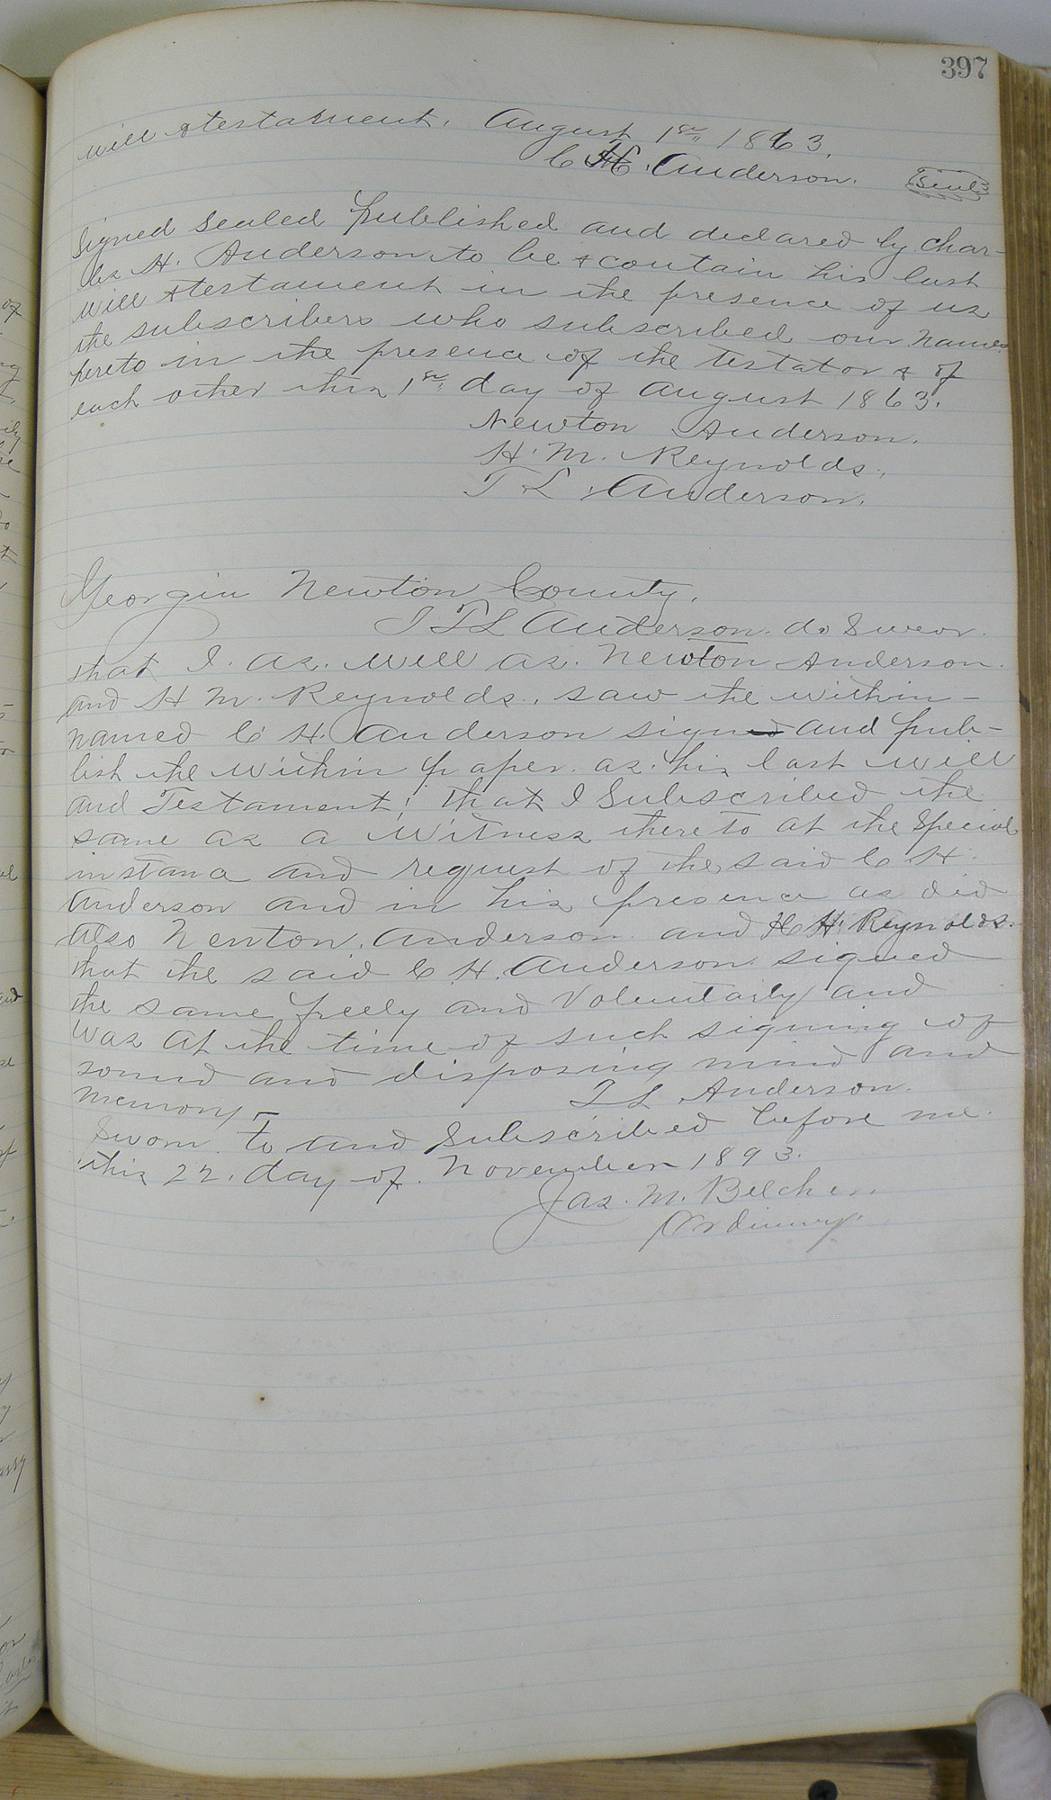 397
will & testament. August 1st 1863.
C H. Anderson. Seal
Signed Sealed published and declared by Char-
les H. Anderson to be & contain his last
will & testament in the presence of us
the subscribers who subscribed our names
hereto in the presence of the testator & of
each other this 1st day of August 1863.
Newton Anderson.
H. M. Reynolds.
T L. Anderson.
Georgia Newton County.
I T L Anderson do Swear
that I as well as Newton Anderson
and H M. Reynolds, saw the within-
named C H. Anderson sign and pub-
lish the within paper as his last will
and Testament; that I Subscribed the
same as a Witness thereto at the Special
instance and request of the said C H.
Anderson and in his presence as did
also Newton Anderson and H. Reynolds.
that the said C H. Anderson signed
the same freely and Voluntarily and
was at the time of such signing of
sound and disposing mind and
memory -
T L Anderson.
Sworn to and Subscribed before me
this 22. day of November 1893.
Jas. M. Belcher
Ordinary.